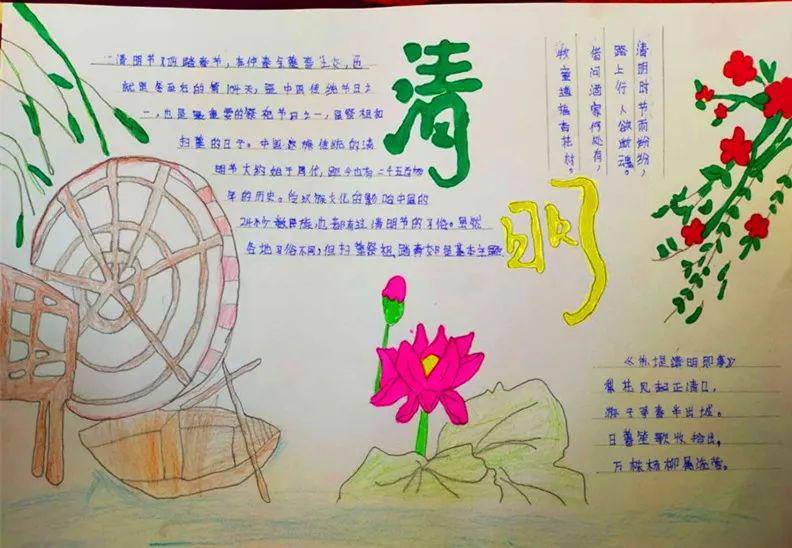 清明节又叫踏青节，在仲春与暮春之交，也
就是冬至后的第104天，是中国传统节日之
一，也是最重要的祭祀节日之一，是祭祖和
扫墓的日子。中国 族传统的清
明节大约始于周代，距今也有二千五百
年的历史。 汉族文化的影 中国的
24 数民族也都有过清明节的习俗。虽然
各地习俗不同，但扫墓祭祖，踏青 是基本主题
清
明
清明时节雨纷纷，
路上行人欲断魂。
借问酒家何处有，
牧童遥指杏花村。
《苏堤清明即事》
梨花风起正清 ，
游子寻春半出城。
日暮笙歌收拾去，
万株杨柳属流莺。